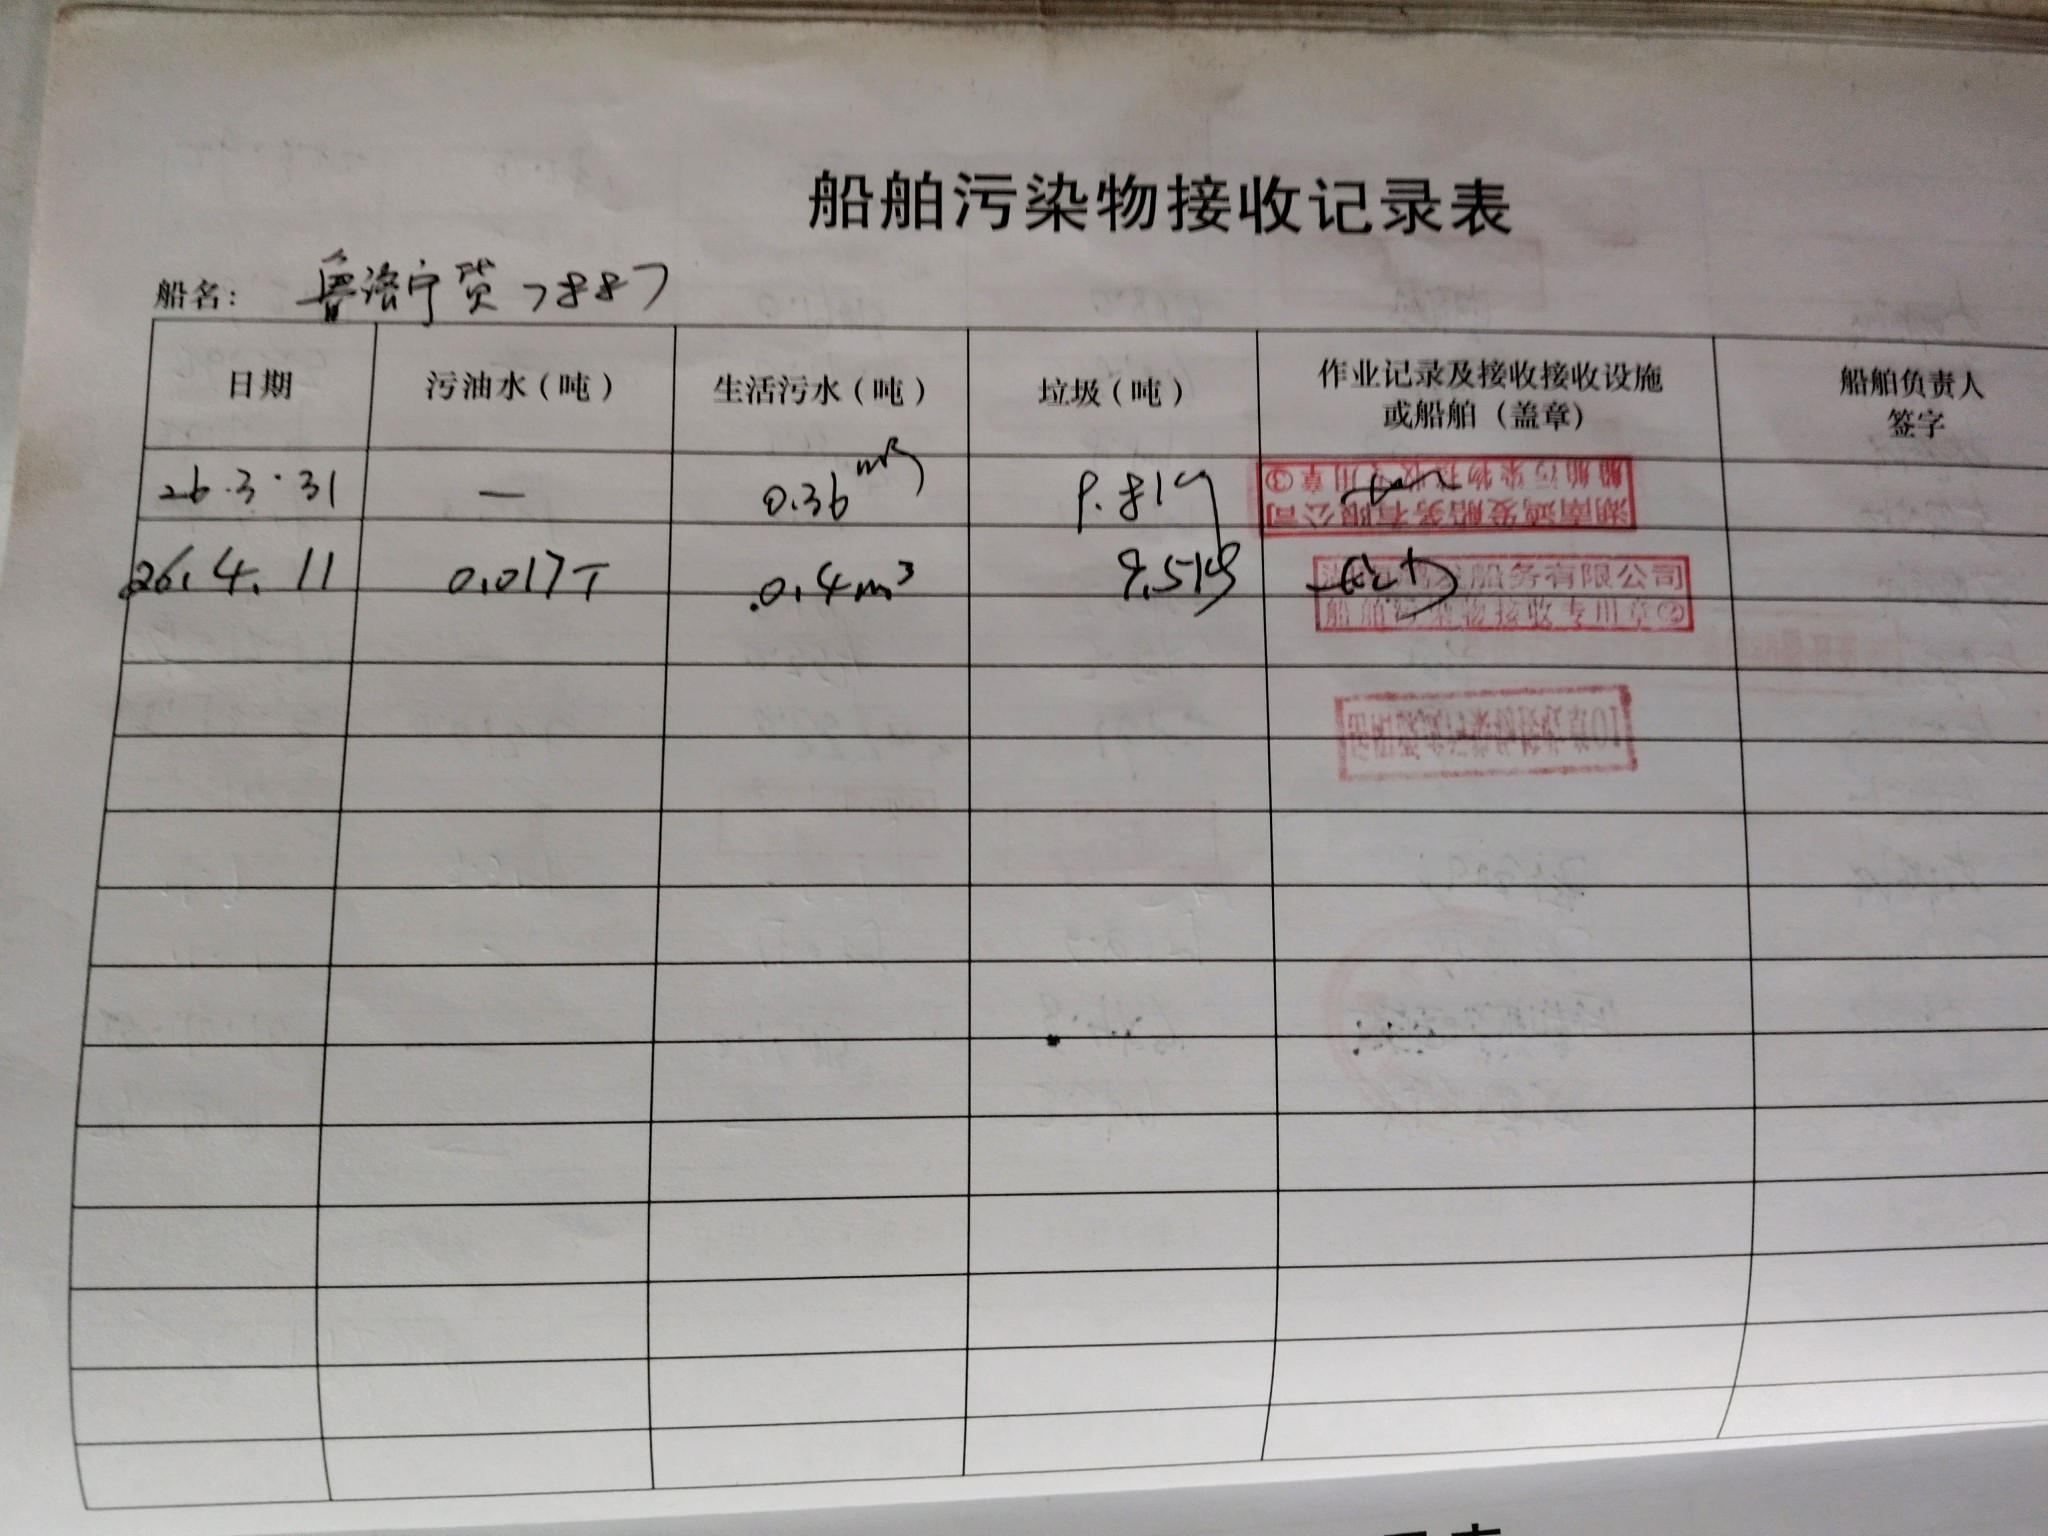 船舶污染物接收记录表
船名： 鲁济宁货7887
日期 污油水（吨） 生活污水（吨） 垃圾（吨） 作业记录及接收接收设施或船舶（盖章） 船舶负责人签字
26.3.31 — 0.36 m³
湖南鸿发船务有限公司
船舶污染物接收专用章③
26.4.11 0.017T 0.4m³ 9.5kg
发船务有限公司
船舶污染物接收专用章②